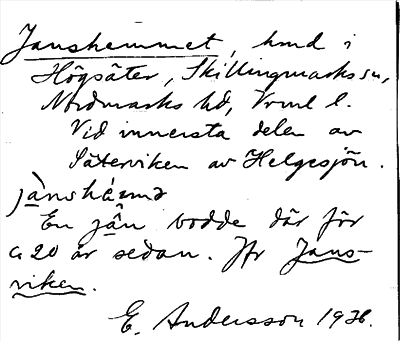 Janshemmet, hmd i
Högsäter, Skillingmarks sn,
Nordmarks hd, Vrml l.
Vid innersta delen av
Säterviken av Helgesjön.
jànshæ̀mə
En jån bodde där för
c:a 20 år sedan. Jfr Jans-
viken.
E. Andersson 1936.